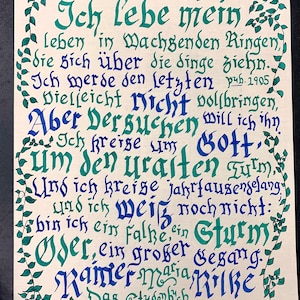 Ich lebe mein
leben in wachsenden Ringen,
die sich über die dinge ziehn.
Ich werde den letzten pub. 1905
vielleicht nicht vollbringen,
Aber versuchen will ich ihn
Ich kreise um Gott.
um den uralten Turm,
Und ich kreise jahrtausendelang,
und ich weiß noch nicht:
bin ich ein falke, ein Sturm
Oder, ein großer Gesang.
Rainer Maria Rilke
Das